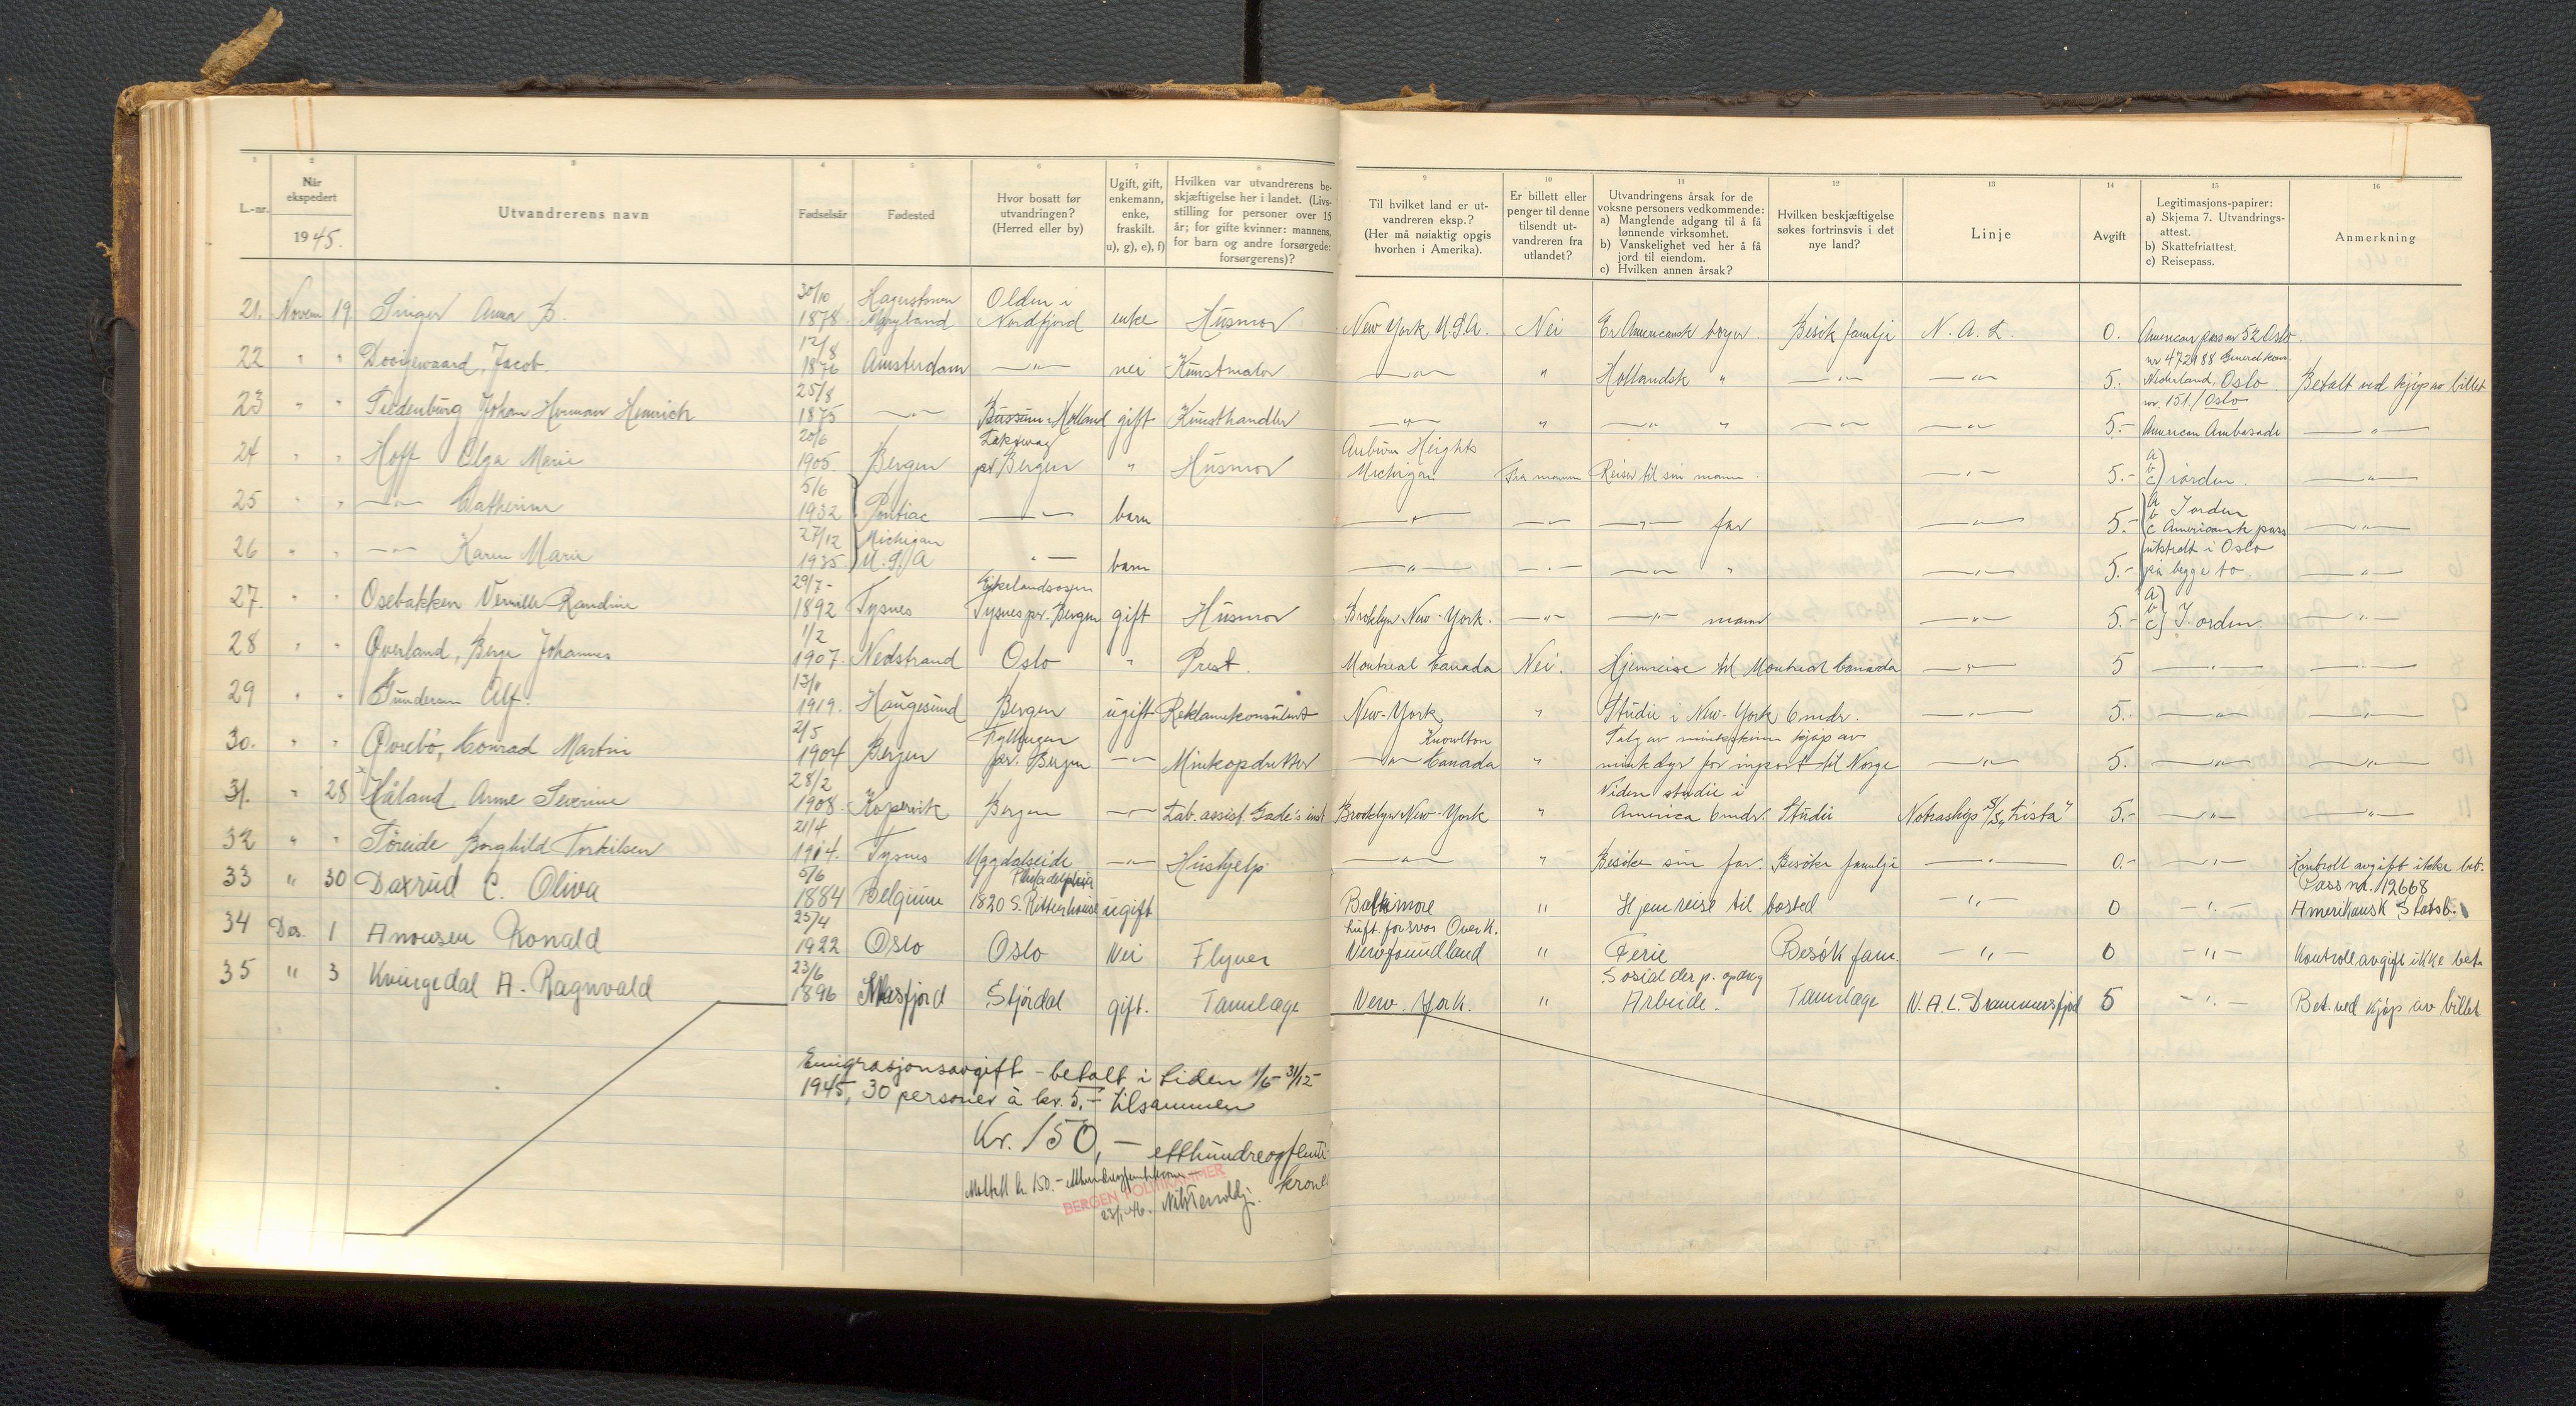 1 2 3 4 5 6 7 8 9 10 11 12 13 14 15 16
L.-nr. | Når ekspedert 1945. | Utvandrerens navn | Fødselsår | Fødested | Hvor bosatt før utvandringen? (Herred eller by) | Ugift, gift, enkemann, enke, fraskilt. u), g), e), f) | Hvilken var utvandrerens beskjæftigelse her i landet. (Livsstilling for personer over 15 år; for gifte kvinner: mannens, for barn og andre forsørgede: forsørgerens)? | Til hvilket land er utvandreren eksp.? (Her må nøiaktig opgis hvorhen i Amerika). | Er billett eller penger til denne tilsendt utvandreren fra utlandet? | Utvandringens årsak for de voksne personers vedkommende: a) Manglende adgang til å få lønnende virksomhet. b) Vanskelighet ved her å få jord til eiendom. c) Hvilken annen årsak? | Hvilken beskjæftigelse søkes fortrinsvis i det nye land? | Linje | Avgift | Legitimasjons-papirer: a) Skjema 7. Utvandrings-attest. b) Skattefriattest. c) Reisepass. | Anmerkning
21. Novem 19. Singer Anna B. 30/10 1878 Hagerstown Maryland Olden i Nordfjord enke Husmor New York U.S.A. Nei Er Amerikansk borger Besøk familje N. A. L. 0. American pass nr 52 Oslo.
22 " " Dooijewaard, Jacob. 12/8 1876 Amsterdam —"— nei Kunstmaler —"— " Hollandsk " —"— —"— 5.- nr 472188 General kons. Nederland, Oslo Betalt ved kjøp av billet
23 " " Tiedenburg Johan Herman Heinrich 25/8 1875 —"— Bussum Holland gift Kunsthandler —"— " —"— " —"— —"— 5.- nr. 151./Oslo American Ambasade —"—
24 " " Hoff Olga Marie 20/6 1905. Bergen Laksevag pr. Bergen " Husmor Auburn Heights Michigan Fra mannen Reiser til sin mann. —"— 5.- a) b) c) iorden. —"—
25 " " —"— Catherine 5/6 1932 Pontiac —"— barn —"— —"— —"— far —"— 5.- a b c Iorden Amerikansk pass —"—
26 " " —"— Karen Marie 27/12 1935 Michigan U.S.A "— barn —"— —"— —"— " —"— 5.- utstedt i Oslo på begge to. —"—
27. " " Osebakken Randine 29/7- 1892 Tysnes Eikelandsosen Tysnes pr. Bergen gift Husmor Broklyn New-York. —"— —"— mann —"— 5.- a) b) c) I orden —"—
28 " " Øverland, Berge Johannes 1/2 1907. Nedstrand Oslo " Prest. Montreal Canada Nei. Hjemreise til Montreal Canada —"— 5 —"— —"—
29 " " Gundersen Alf. 1919. Haugesund Bergen ugift Reklamekonsulent New-York " Studie i New-York 6 mdr. —"— 5.- —"— —"—
30. " " Øvrebø, Conrad Martin 2/5 1904 Bergen Fyllingen pr. Bergen —"— Minkopdretter Knowlton —"— Canada " Salg av minkskinn kjøp av minkdyr for import til Norge —"— 5. —"— —"—
31. " 28 Håland Anne Severine 28/2 1908. Kopervik Bergen —"— Lab. assist Gade's inst Brooklyn New-York " Viden. studie i America 6 mdr. Studie Notraship S/S "Lista" 5.- —"— —"—
32 " " Tøreide Borghild Torkilsen 21/4 1914. Tysnes Uggdalseide —"— Hushjelp —"— " Besøke sin far. Besøke familje —"— 0.- —"— Kontroll avgift ikke bet.
33 " 30 Daxrud C. Oliva 5/6 1884 Belgium Philadelphia 1820 S. Rittenhouse ugift Baltimore " Hjemreise til bosted —"— 0 —"— Pass nr. 12668 Amerikansk Statsb.
34 Des. 1 Ronald 25/4 1922 Oslo Oslo Nei Flyver Luftforsvar Overk. Newfoundland " Ferie Besøk fam. —"— 0 —"— Kontroll.avgift ikke bet.
35 " 3 Kvingedal A. Ragnvald 23/6 1896 Masfjord Stjørdal gift. Tannlæge New. York. " Arbeide. Tannlæge N.A.L. Drammensfjord 5 —"— Bet. ved kjøp av billet
Emigrasjonsavgift - betalt i tiden 1/5 - 31/12
1945, 30 personer à kr. 5,- tilsammen
Kr. 150,- etthundreogfemti
kroner
Mottatt kr 150.-
BERGEN POLITIKAMMER
23/1-46.